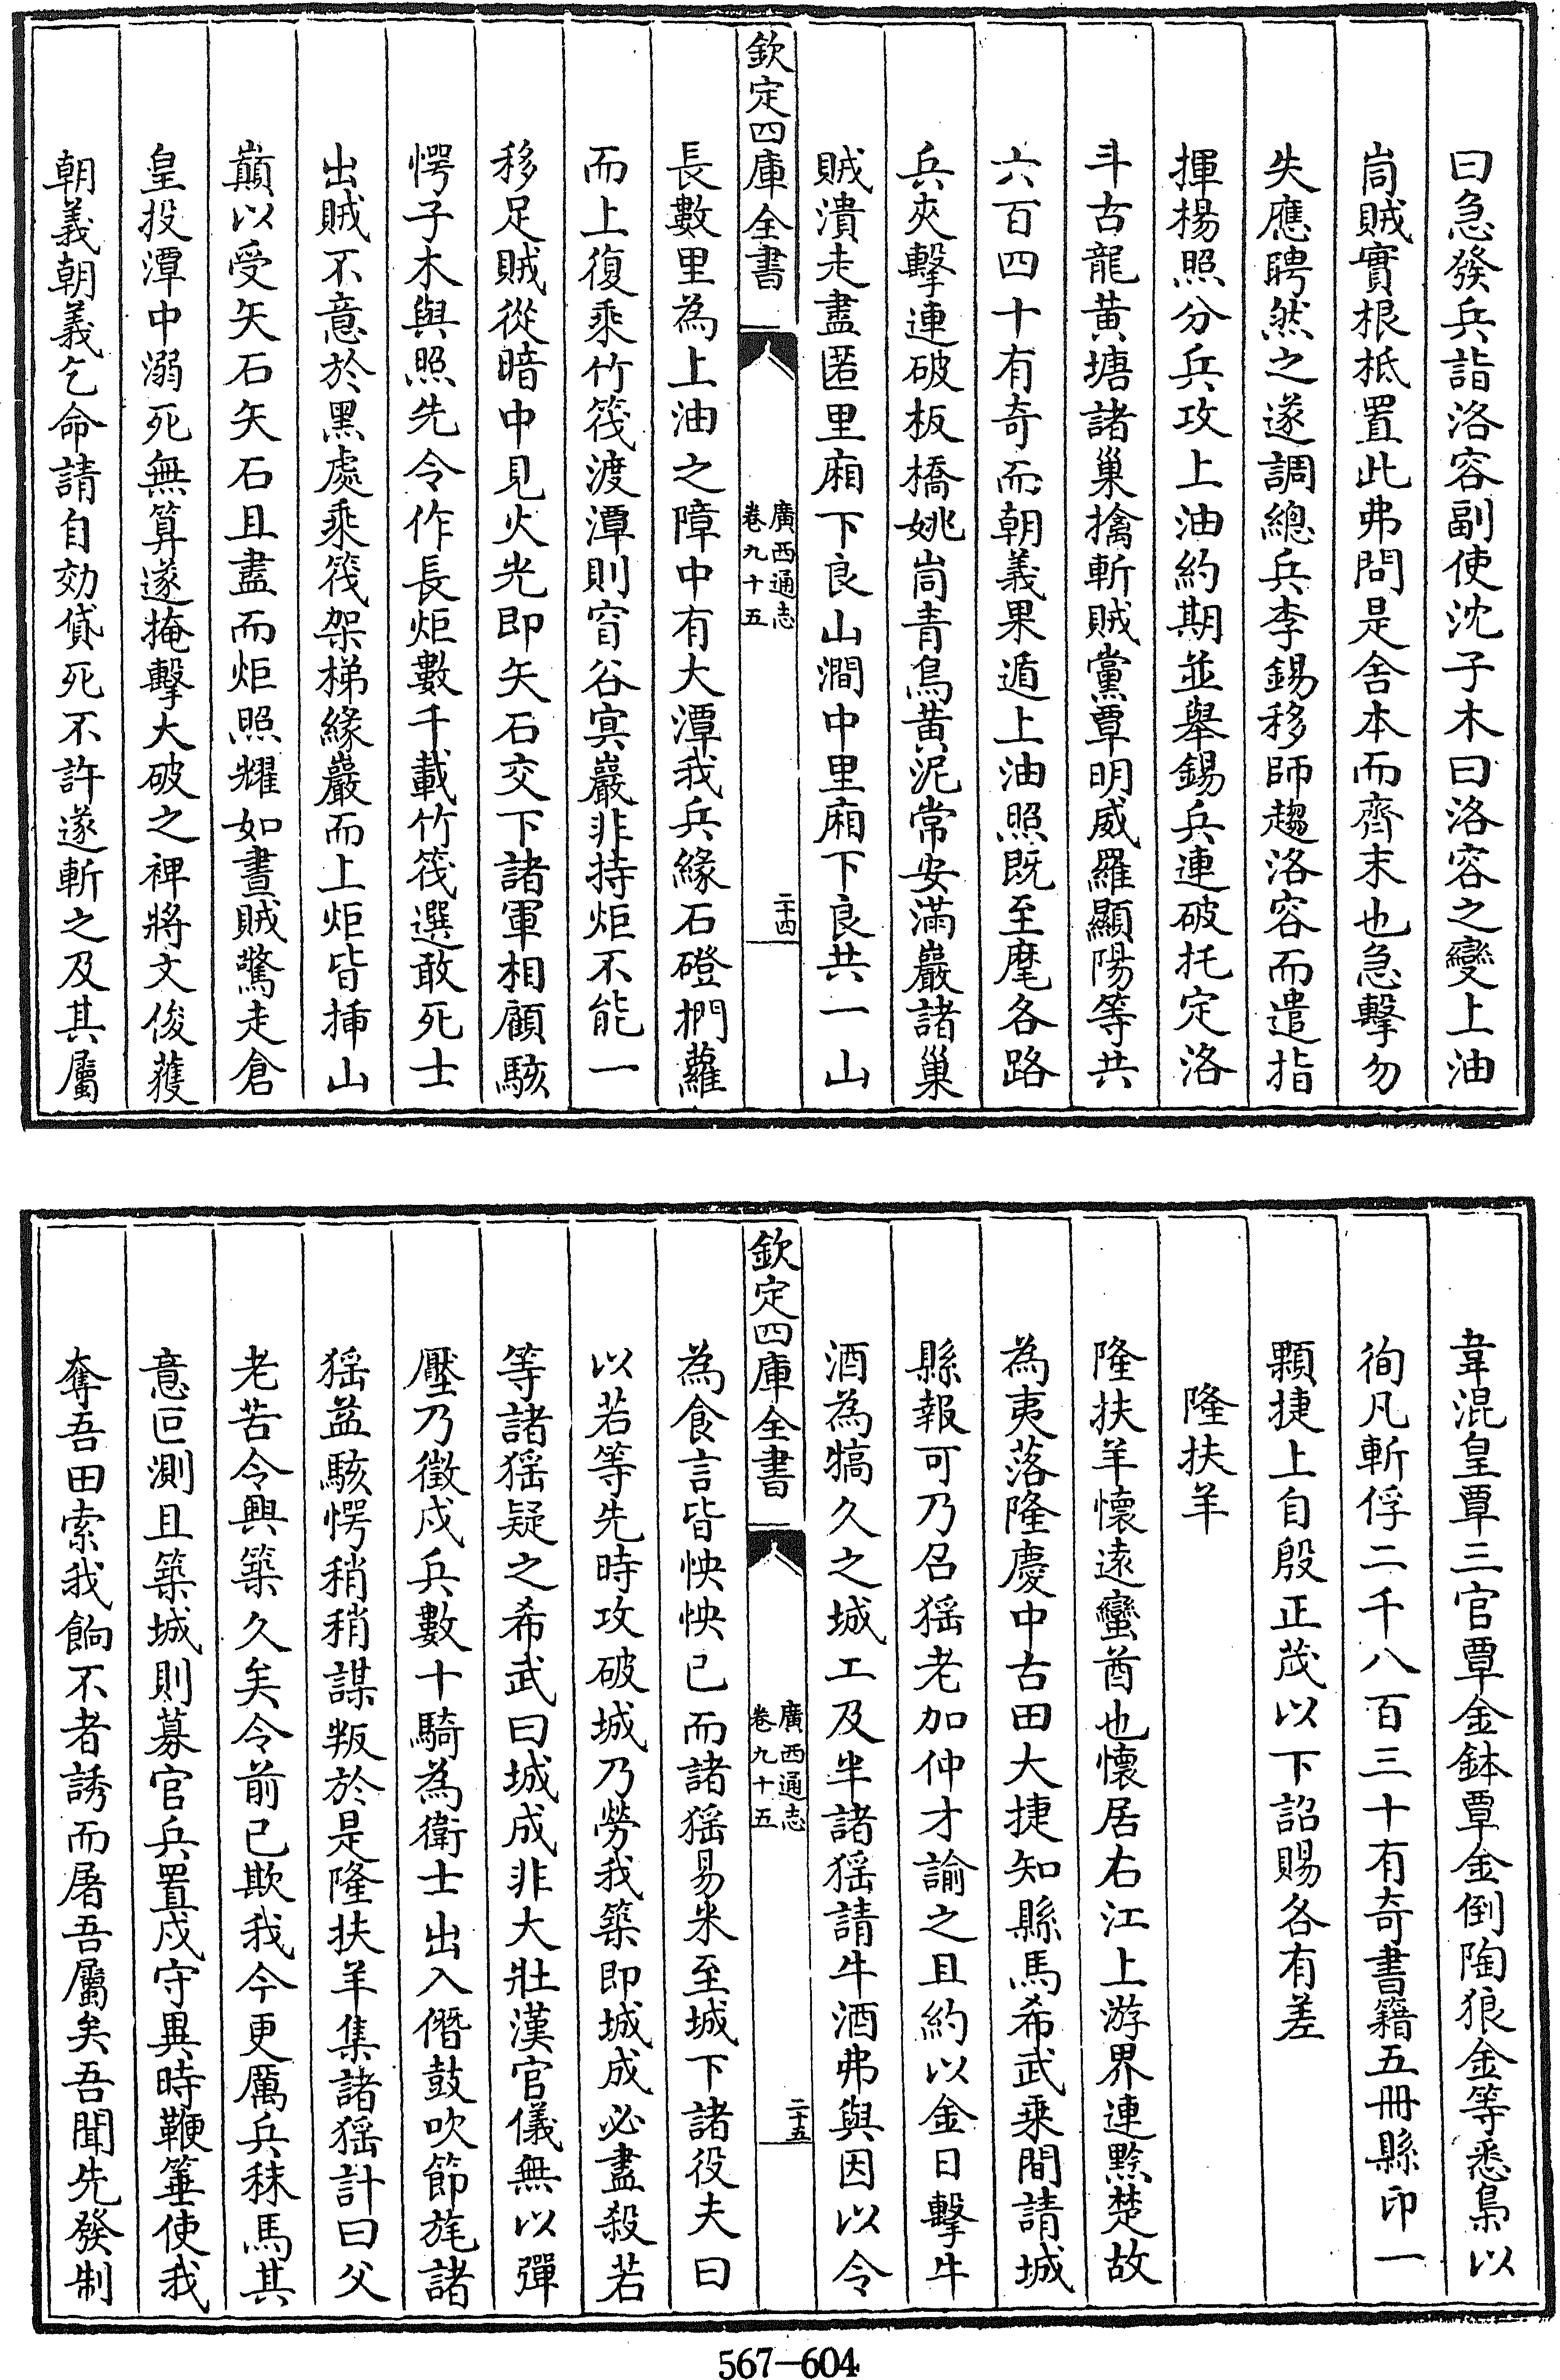 曰急發兵詣洛容副使沈子木曰洛容之變上油
峝賊實根柢置此弗問是舍本而齊末也急擊勿
失應聘然之遂調總兵李錫移師趨洛容而遣指
揮楊照分兵攻上油約期並舉錫兵連破托定洛
斗古龍黃塘諸巢擒斬賊黨覃明威羅顯陽等共
六百四十有奇而朝義果遁上油照既至麾各路
兵夾擊連破板橋姚峝青鳥黃泥常安滿巖諸巢
賊潰走盡匿里廂下良山澗中里廂下良共一山
欽定四庫全書
廣西通志
卷九十五
二十四
長數里為上油之障中有大潭我兵緣石磴捫蘿
而上復乘竹筏渡潭則窅谷寞巖非持炬不能一
移足賊從暗中見火光即矢石交下諸軍相顧駭
愕子木與照先令作長炬數千載竹筏選敢死士
出賊不意於黑處乘筏架梯緣巖而上炬皆揷山
巔以受矢石矢石且盡而炬照耀如晝賊驚走倉
皇投潭中溺死無算遂掩擊大破之裨將文俊獲
朝義朝義乞命請自効貸死不許遂斬之及其屬
韋混皇覃三官覃金鉢覃金倒陶狼金等悉梟以
徇凡斬俘二千八百三十有奇書籍五冊縣印一
顆捷上自殷正茂以下詔賜各有差
隆扶羊
隆扶羊懷遠蠻酋也懷居右江上游界連黔楚故
為夷落隆慶中古田大捷知縣馬希武乘間請城
縣報可乃召猺老加仲才諭之且約以金日擊牛
酒為犒久之城工及半諸猺請牛酒弗與因以令
欽定四庫全書
廣西通志
卷九十五
二十五
為食言皆怏怏已而諸猺易米至城下諸役夫曰
以若等先時攻破城乃勞我築即城成必盡殺若
等諸猺疑之希武曰城成非大壯漢官儀無以彈
壓乃徵戍兵數十騎為衛士出入僭鼓吹節旄諸
猺益駭愕稍稍謀叛於是隆扶羊集諸猺計曰父
老苦令興築久矣令前已欺我今更厲兵秣馬其
意叵測且築城則募官兵置戍守異時鞭箠使我
奪吾田索我餉不者誘而屠吾屬矣吾聞先發制
567—604